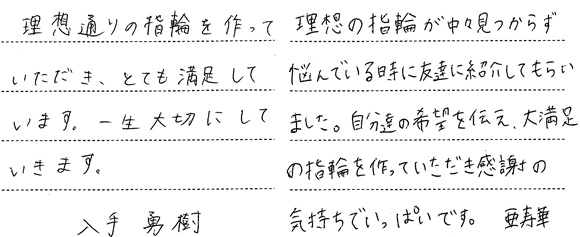 理想通りの指輪を作って
いただき、とても満足して
います。一生大切にして
いきます。
入手 勇樹
理想の指輪が中々見つからず
悩んでいる時に友達に紹介してもらい
ました。自分達の希望を伝え、大満足
の指輪を作っていただき感謝の
気持ちでいっぱいです。 亜寿華